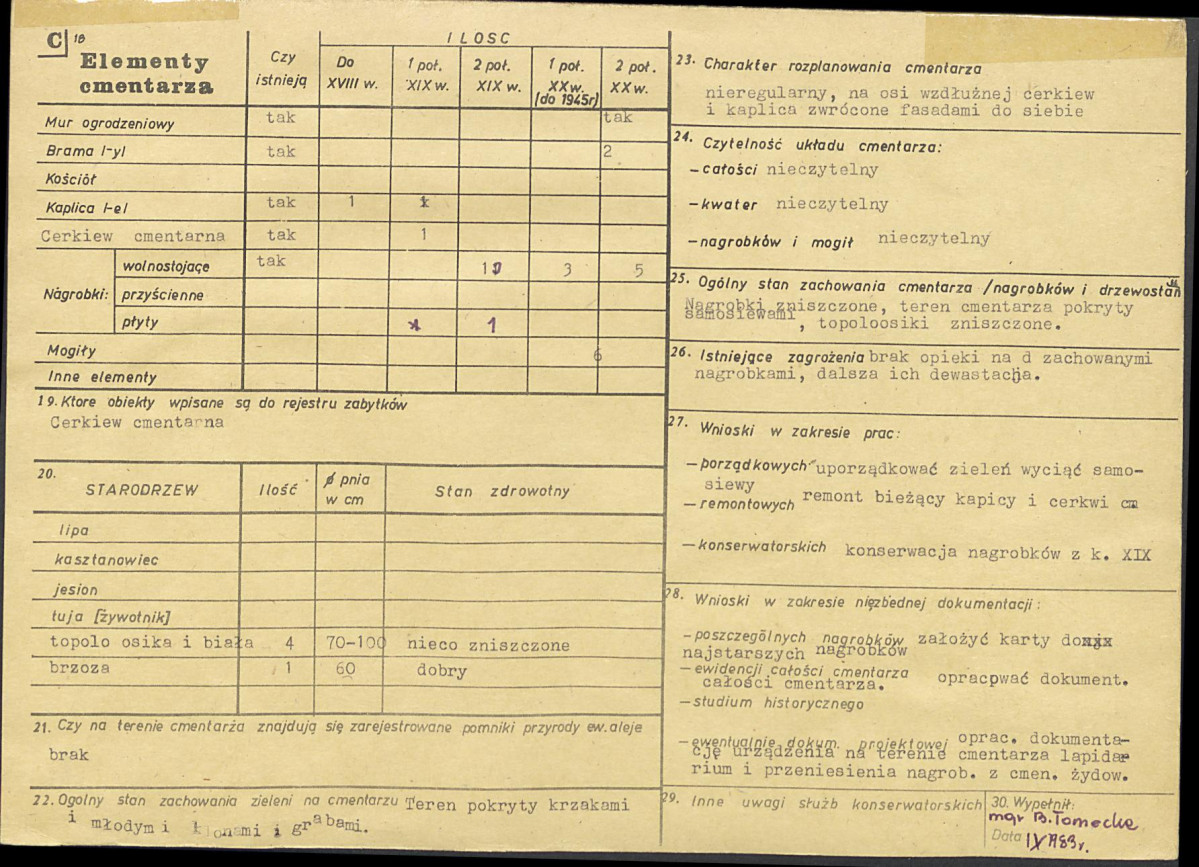 C 18
Elementy cmentarza
Czy istnieją
ILOSC
Do XVIII w.
1 poł. XIX w.
2 poł. XIX w.
1 poł. XX w. (do 1945r)
2 poł. XX w.
Mur ogrodzeniowy tak tak
Brama l-yl tak 2
Kościół
Kaplica l-el tak 1
Cerkiew cmentarna tak 1
Nagrobki: wolnostojące tak 3 5
przyścienne
płyty 1
Mogiły 6
Inne elementy
19. Ktore obiekty wpisane są do rejestru zabytków
Cerkiew cmentarna
20. STARODRZEW Ilość ø pnia w cm Stan zdrowotny
lipa
kasztanowiec
jesion
tuja [żywotnik]
topolo osika i biała 4 70-100 nieco zniszczone
brzoza 1 60 dobry
21. Czy na terenie cmentarza znajdują się zarejestrowane pomniki przyrody ew. aleje
brak
22. Ogolny stan zachowania zieleni na cmentarzu Teren pokryty krzakami
i młodymi klonami i grabami.
23. Charakter rozplanowania cmentarza
nieregularny, na osi wzdłużnej cerkiew
i kaplica zwrócone fasadami do siebie
24. Czytelność układu cmentarza:
- całości nieczytelny
- kwater nieczytelny
- nagrobków i mogił nieczytelny
25. Ogólny stan zachowania cmentarza /nagrobków i drzewostan
Nagrobki zniszczone, teren cmentarza pokryty
samosiewami, topoloosiki zniszczone.
26. Istniejące zagrożenia brak opieki na d zachowanymi
nagrobkami, dalsza ich dewastacja.
27. Wnioski w zakresie prac:
- porządkowych uporządkować zieleń wyciąć samo-
siewy
- remontowych remont bieżący kapicy i cerkwi cm
- konserwatorskich konserwacja nagrobków z k. XIX
28. Wnioski w zakresie nięzbędnej dokumentacji:
- poszczególnych nagrobków założyć karty do
najstarszych nagrobków
- ewidencji całości cmentarza opracpwać dokument.
całości cmentarza.
- studium historycznego
- ewentualnie dokum. projektowej oprac. dokumenta-
cję urządzenia na terenie cmentarza lapida-
rium i przeniesienia nagrob. z cmen. żydow.
29. Inne uwagi służb konserwatorskich
30. Wypełnił:
mgr B. Tomecka
Data IX 1983r.